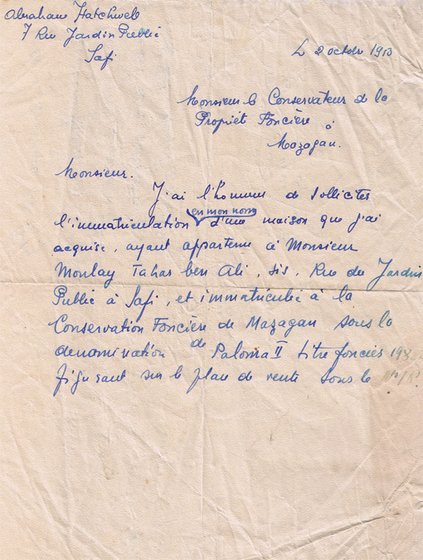 Abraham Hatchwell
7 Rue Jardin Public
Safi
Le 2 octobre
Monsieur le Conservateur de la
Propriété Foncière
à
Mazagan.
Monsieur.
J'ai l'honneur de solliciter
l'immatriculation en mon nom d'une maison que j'ai
acquise, ayant appartenu à Monsieur
Moulay Tahar ben Ali, sis, Rue du Jardin
Public à Safi, et immatriculée à la
Conservation Foncière de Mazagan sous la
dénomination de Paloma II titre foncier
figurant sur le plan de vente sous le